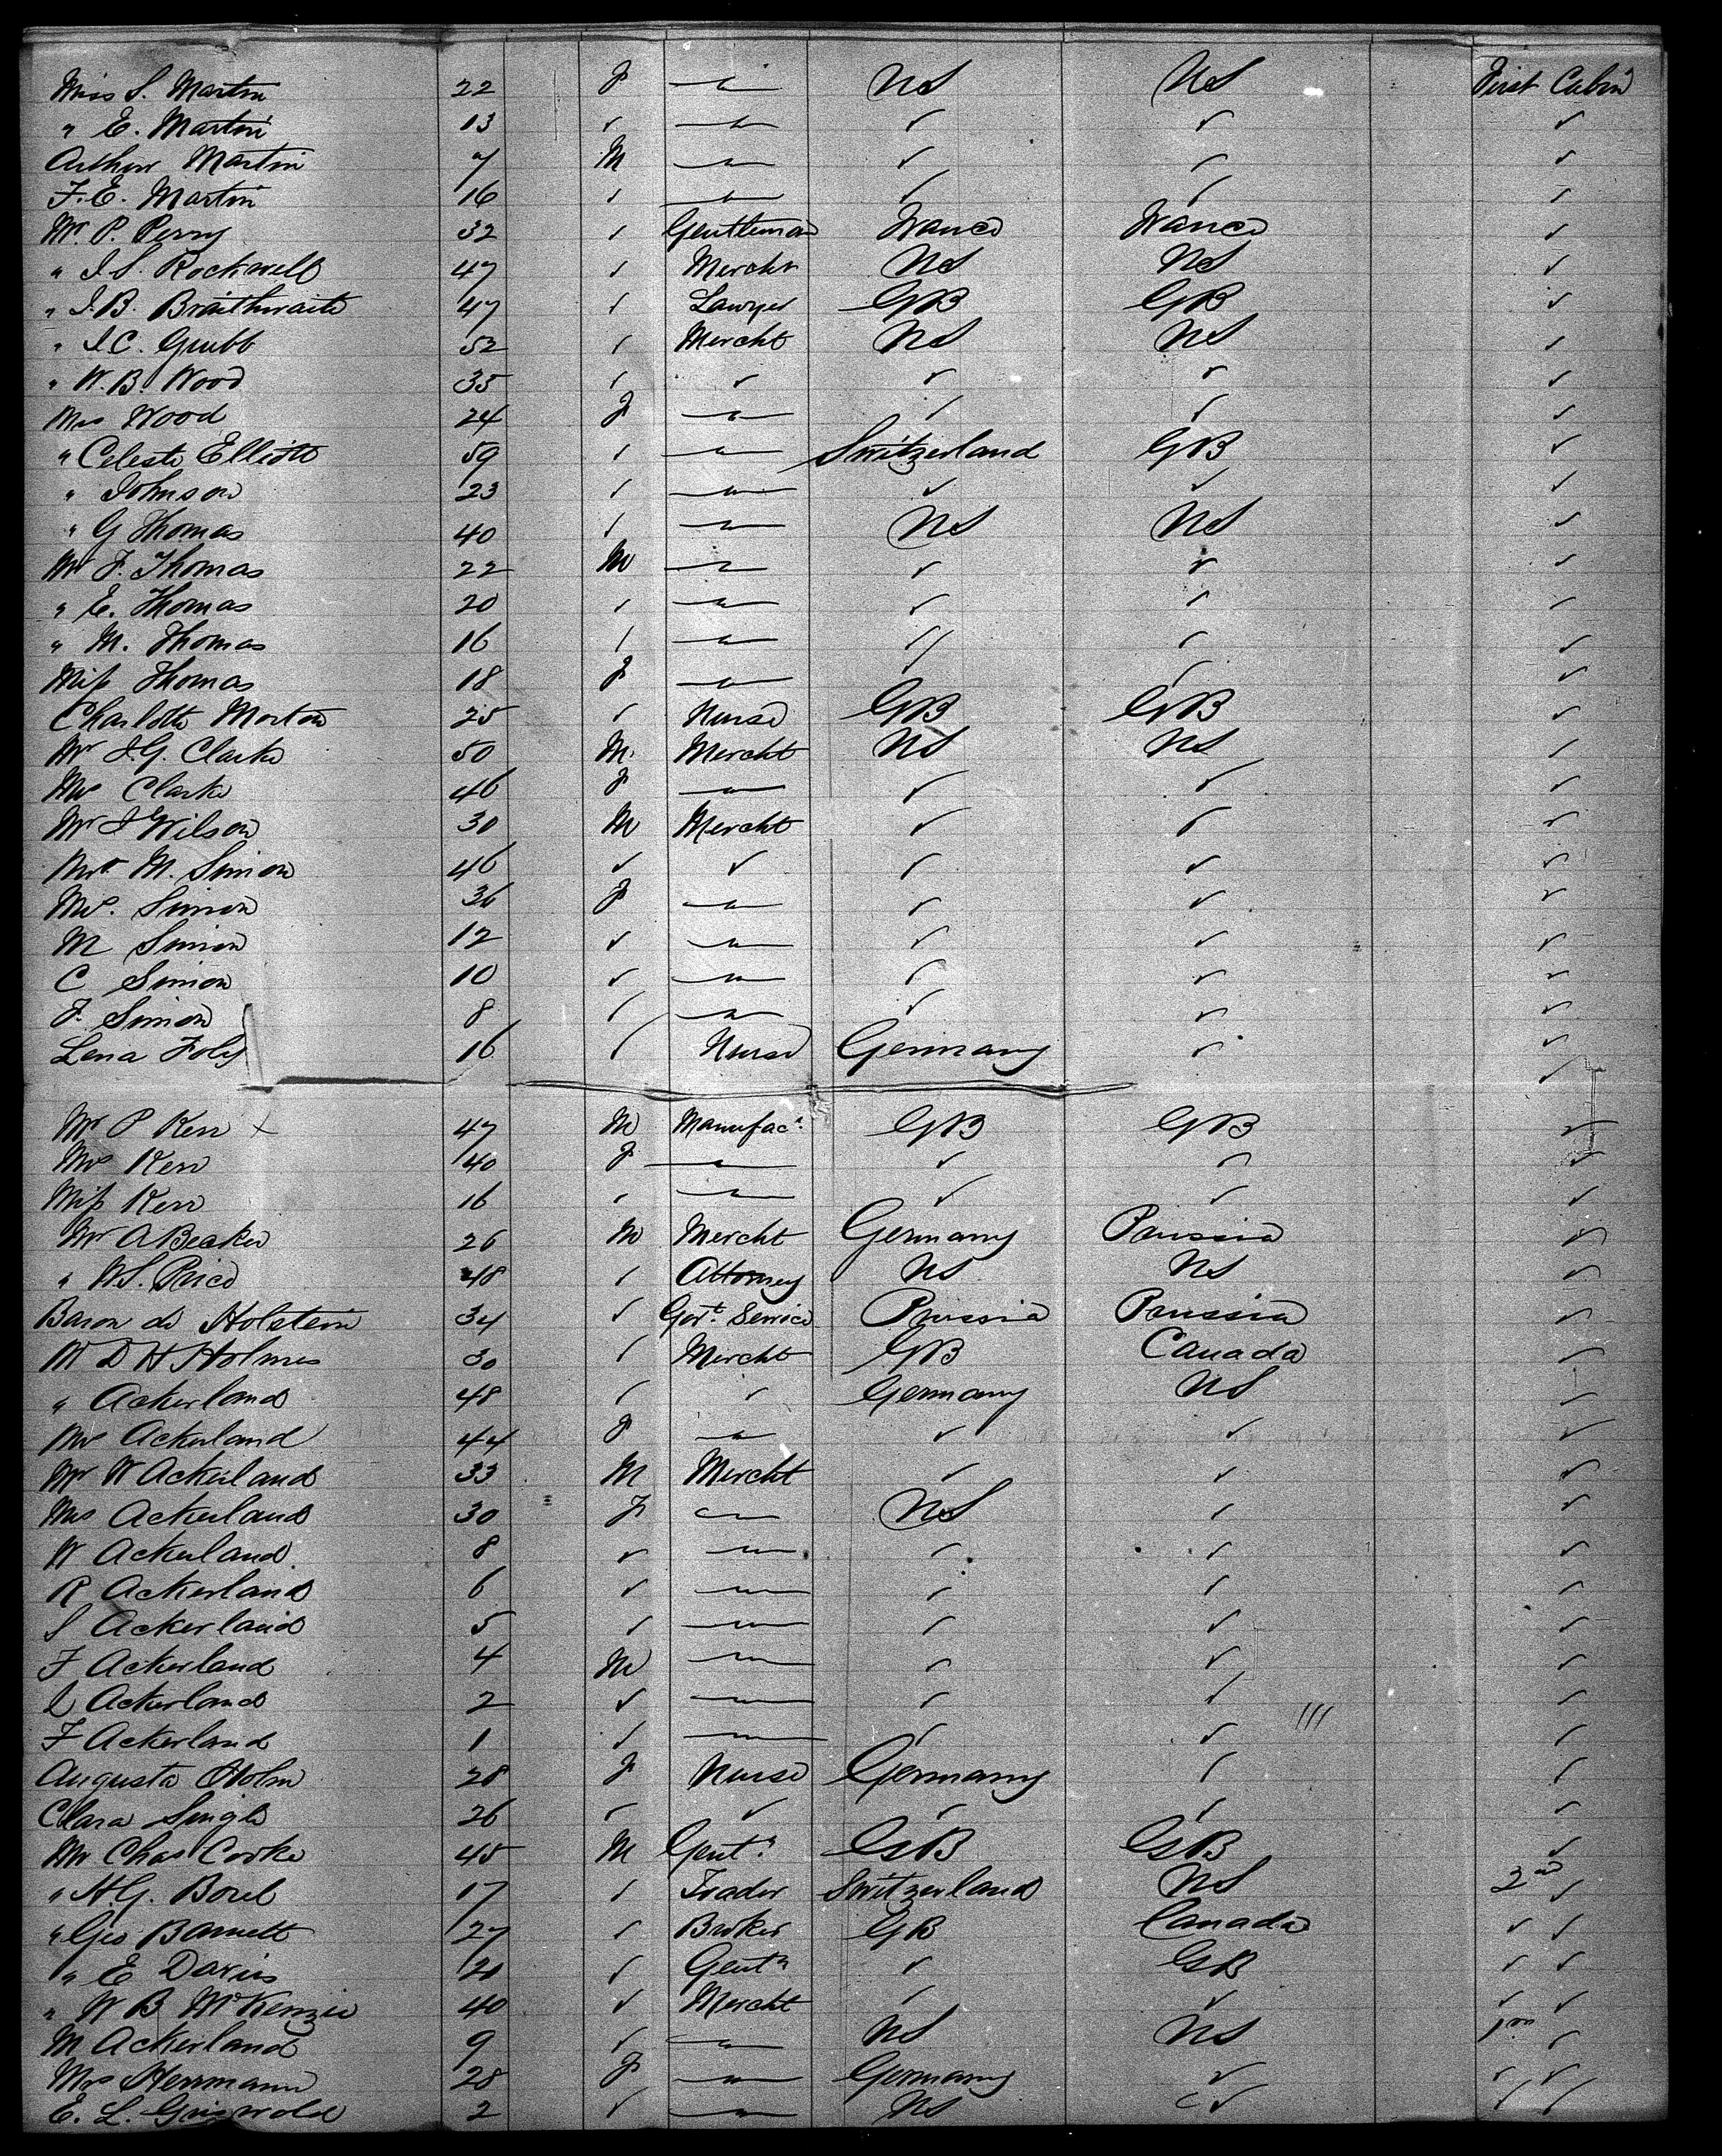 Miss S. Martin 22 F — " — US US First Cabin
" E. Martin 13 ✓ — " — ✓ ✓ ✓
Arthur Martin 7 M — " — ✓ ✓ ✓
F. E. Martin 16 ✓ — " — ✓ ✓ ✓
Mr P. Perry 32 ✓ Gentleman France France ✓
" J. S. Rockwell 47 ✓ Mercht US US ✓
" J. B. Braithwaite 47 ✓ Lawyer GB GB ✓
" J. C. Grubb 52 ✓ Mercht US US ✓
" W. B. Wood 35 ✓ ✓ ✓ ✓ ✓
Mrs Wood 24 F — " — ✓ ✓ ✓
" Celeste Elliott 59 ✓ — " — Switzerland GB ✓
" Johnson 23 ✓ — " — ✓ ✓ ✓
" G Thomas 40 ✓ — " — US US ✓
Mr F. Thomas 22 M — " — ✓ ✓ ✓
" E. Thomas 20 ✓ — " — ✓ ✓ ✓
" M. Thomas 16 ✓ — " — ✓ ✓ ✓
Miss Thomas 18 F — " — ✓ ✓ ✓
Charlotte Morton 25 ✓ Nurse GB GB ✓
Mr J. G. Clarke 50 M. Mercht US US ✓
Mrs Clarke 46 F — " — ✓ ✓ ✓
Mr J Wilson 30 M Mercht ✓ ✓ ✓
Mr. M. Simon 46 ✓ ✓ ✓ ✓ ✓
Mrs. Simon 36 F — " — ✓ ✓ ✓
M Simon 12 ✓ — " — ✓ ✓ ✓
C Simon 10 ✓ — " — ✓ ✓ ✓
F. Simon 8 ✓ — " — ✓ ✓ ✓
Lena Foly 16 ✓ Nurse Germany ✓ ✓
Mr P Kerr × 47 M Manufacr. GB GB ✓
Mrs Kerr 40 F — " — ✓ ✓ ✓
Miss Kerr 16 ✓ — " — ✓ ✓ ✓
Mr A Becker 26 M Mercht Germany Prussia ✓
" W. S. Price 48 ✓ Attorney US US ✓
Baron de Holstein 34 ✓ Govt. Service Prussia Prussia ✓
Mr D H Holmes 30 ✓ Mercht GB Canada ✓
" Ackerland 48 ✓ ✓ Germany US ✓
Mrs Ackerland 44 F — " — ✓ ✓ ✓
Mr W Ackerland 33 M Mercht ✓ ✓ ✓
Mrs Ackerland 30 F — " — US ✓ ✓
W Ackerland 8 ✓ — " — ✓ ✓ ✓
R Ackerland 6 ✓ — " — ✓ ✓ ✓
S Ackerland 5 ✓ — " — ✓ ✓ ✓
F Ackerland 4 M — " — ✓ ✓ ✓
L Ackerland 2 ✓ — " — ✓ ✓ ✓
F Ackerland 1 ✓ — " — ✓ ✓ ✓
Augusta Holm 28 F Nurse Germany ✓ ✓
Clara Single 26 ✓ ✓ ✓ ✓ ✓
Mr Chas Cooke 45 M Gentn GB GB ✓
" H. G. Borel 17 ✓ Trader Switzerland US 2nd ✓
" Geo Barnett 27 ✓ Broker GB Canada ✓ ✓
" E Davies 21 ✓ Gentn ✓ GB ✓ ✓
" W B McKenzie 40 ✓ Mercht ✓ ✓ ✓ ✓
M Ackerland 9 ✓ — " — US US ✓
Mrs Herrmann 28 F — " — Germany ✓ ✓ ✓
E. L. Griswold 2 ✓ — " — US ✓ ✓ ✓